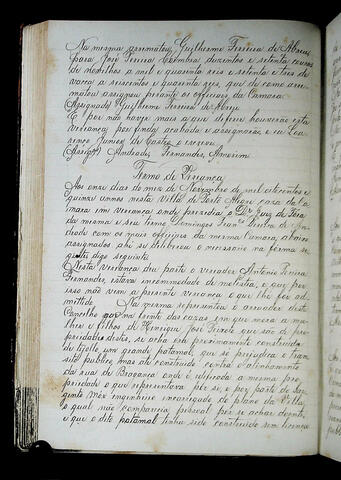 Na mesma arrematou Guilherme Ferreira de Abreu
para José Pereira Coimbra duzentos e setenta couros
de novilhos a mil e quarenta reis e setenta e tres de
vacca a seiscentos e quarenta reis, que de como arre-
matou assignou perante os officiaes da Camara
(Assignado) Guilherme Ferreira de Abreu
E por não haver mais a que deferir houverão esta
vereança por finda acabada e assignarão e eu Lou-
renço Junior de Castro o escrevi
(Assigº) Andrade, Fernandes, Amorim
Termo de Vereança
Aos onze dias do mez de Novembro de mil oitocentos e
quinze annos nesta Villa de Porto Alegre casa da Ca-
mara em vereança onde presidio o Dr. Juiz de Fóra
da mesma e seu termo Domingos Francº
drade com os mais officiaes da mesma Camara, abaixo
assignados ahi se deliberou o necessario na forma se-
guinte digo seguinte
Nesta vereança deu parte o vereador Antonio Pereira
Fernandes, estava incommodado de molestia, e que por
isso não vem a presente vereança o que lhe foi ad-
mittido. Na mesma representou o arruador deste
Concelho que na frente das casas em que mora a mu-
lher e filhos de Henrique José que são de pro-
priedades destes, se acha este proximamente construido
de tijollo um grande patamal, que se prejudica o tran-
sito publico, mas até construido contra o alinhamento
da rua de Bragança onde é edificada a mesma pro-
priedade o que representava por si, e por parte do Sar-
gento mór engenheiro encarregado do plano da Villa
o qual não comparecia pessoal por se achar doente,
e que o dito patamal tinha sido construido sem licença